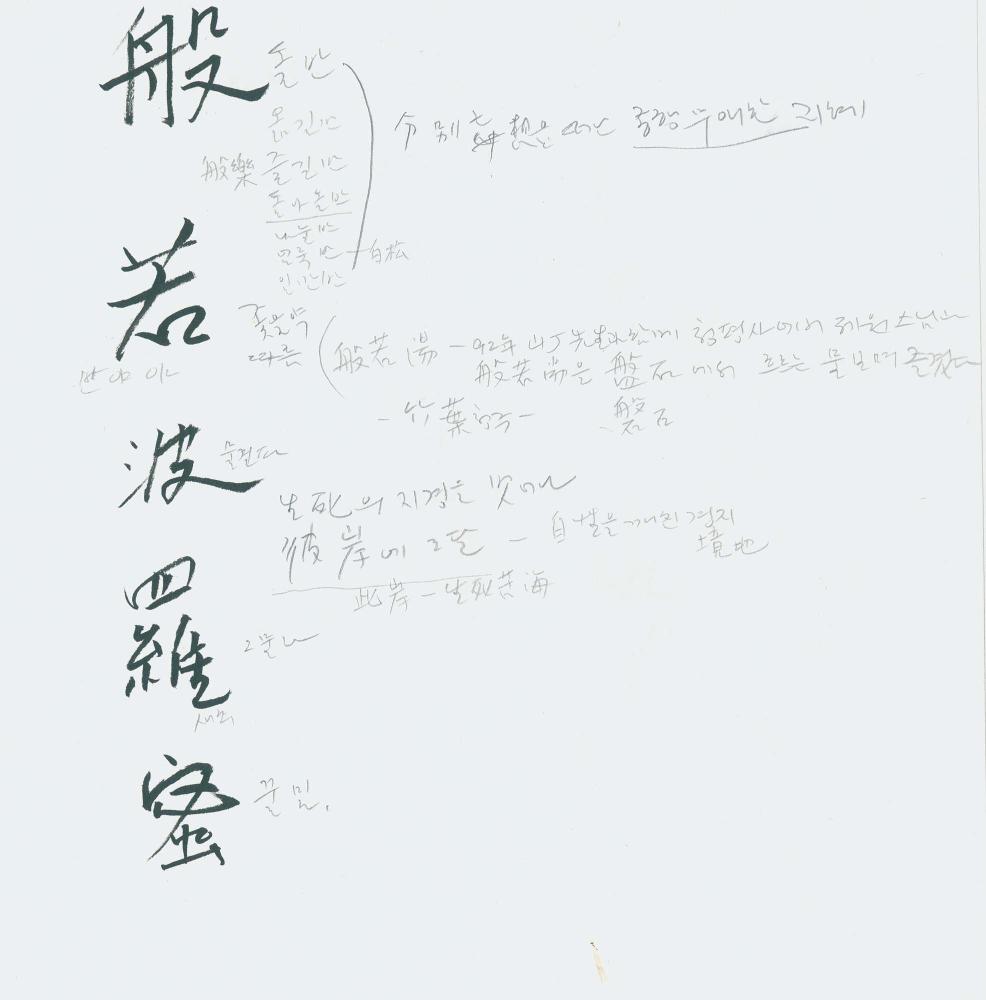 般 돌 반
옮길 반
般樂 즐길 반
돌아올 반
나눌 반
얼룩 반 — 白松
일반 반
分別 想은 떠난 종횡무애한 지혜
若 좇을 약
따를
반야 야
(般若湯 — 92年 先生과 함께 청평사에서 스님과
般若湯을 盤石에서 흐르는 물 보며 즐겼다
- 竹葉청주 - 磐石
波 물결 파
生死의 지경을 벗어나
彼岸에 도달 — 自性을 깨친 경지
境地
此岸 — 生死苦海
羅 그물 나
새
蜜 꿀 밀,